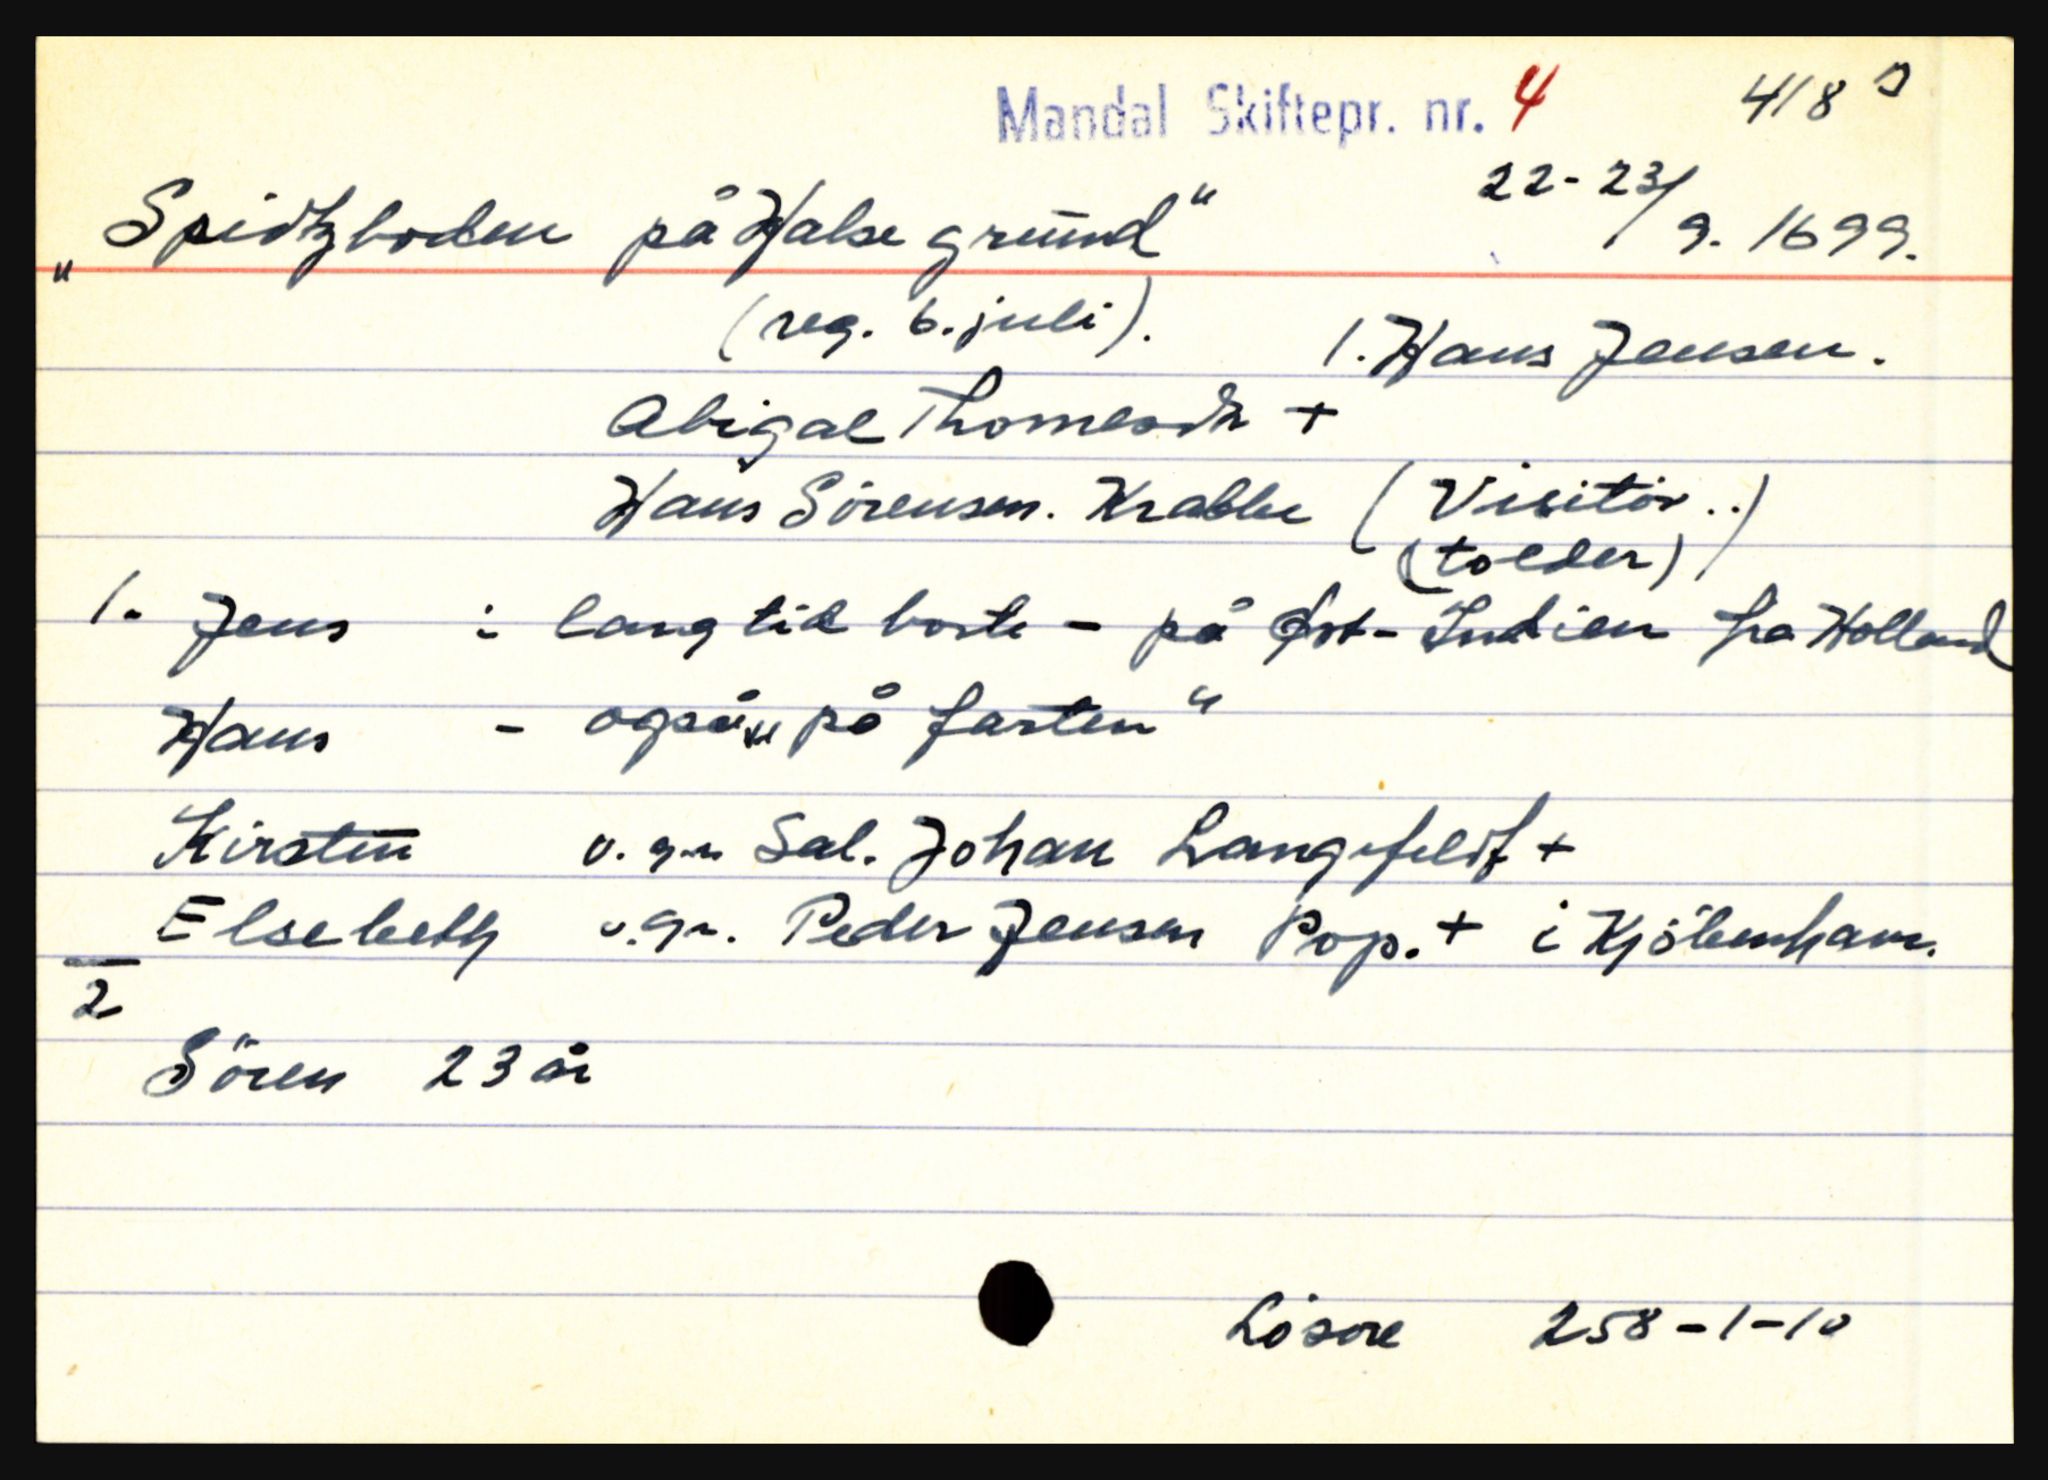 Mandal Skiftepr. nr. 4 418
„Spidtzboden på Halse grund" 22-23/9. 1699.
(reg. 6. juli). 1. Hans Jensen.
Abigael Thomesdtr +
Hans Sörensen. Krabbe (Visitör..)
(tolder)
1. Jens : lang tid borte - på Öst-Indien fra Holland
Hans - også „på farten"
Kirsten v. g.m. Sal. Johan Langefeldt +
Elsebeth v.g.m. Peder Jensen Pop. + i Kjöbenhavn.
2
Sören 23 år
Lösöre 258-1-10